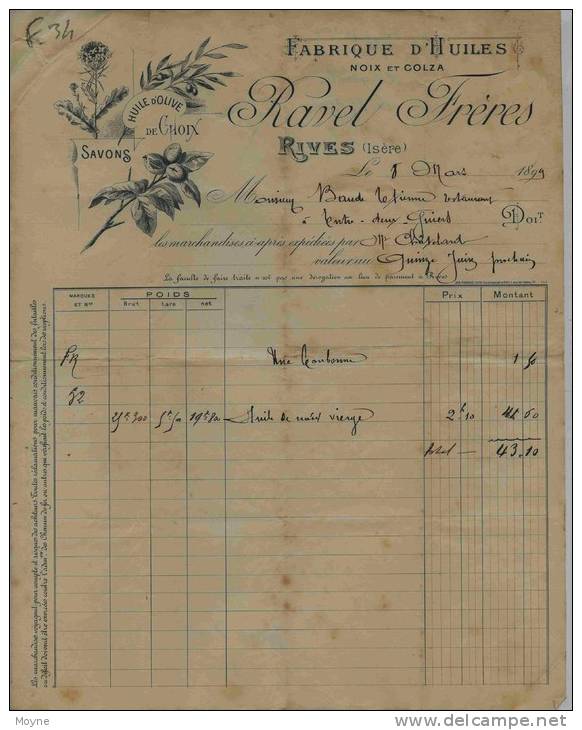 FABRIQUE D'HUILES
NOIX ET COLZA
Ravel Frères
RIVES (Isère)
HUILE D'OLIVE
DE CHOIX
SAVONS
Le 8 Mars 1899
Monsieur Baude Etienne restaurant
à Entre-deux-Guiers DOIT
les marchandises ci-après expédiées par Mr Châteland
valeur au Quinze Juin prochain
La faculté de faire traite n'est pas une dérogation au lieu de paiement à Rives
MARQUES ET Nos POIDS Brut tare net Prix Montant
FR Une bonbonne 1 50
52
25k300 5k500 19k800 Huile de noix vierge 2f10 41 60
Total — 43.10
Les marchandises voyagent pour compte et risques des acheteurs. Toutes réclamations pour mauvais conditionnement des futailles
Moyne
www.delcampe.net